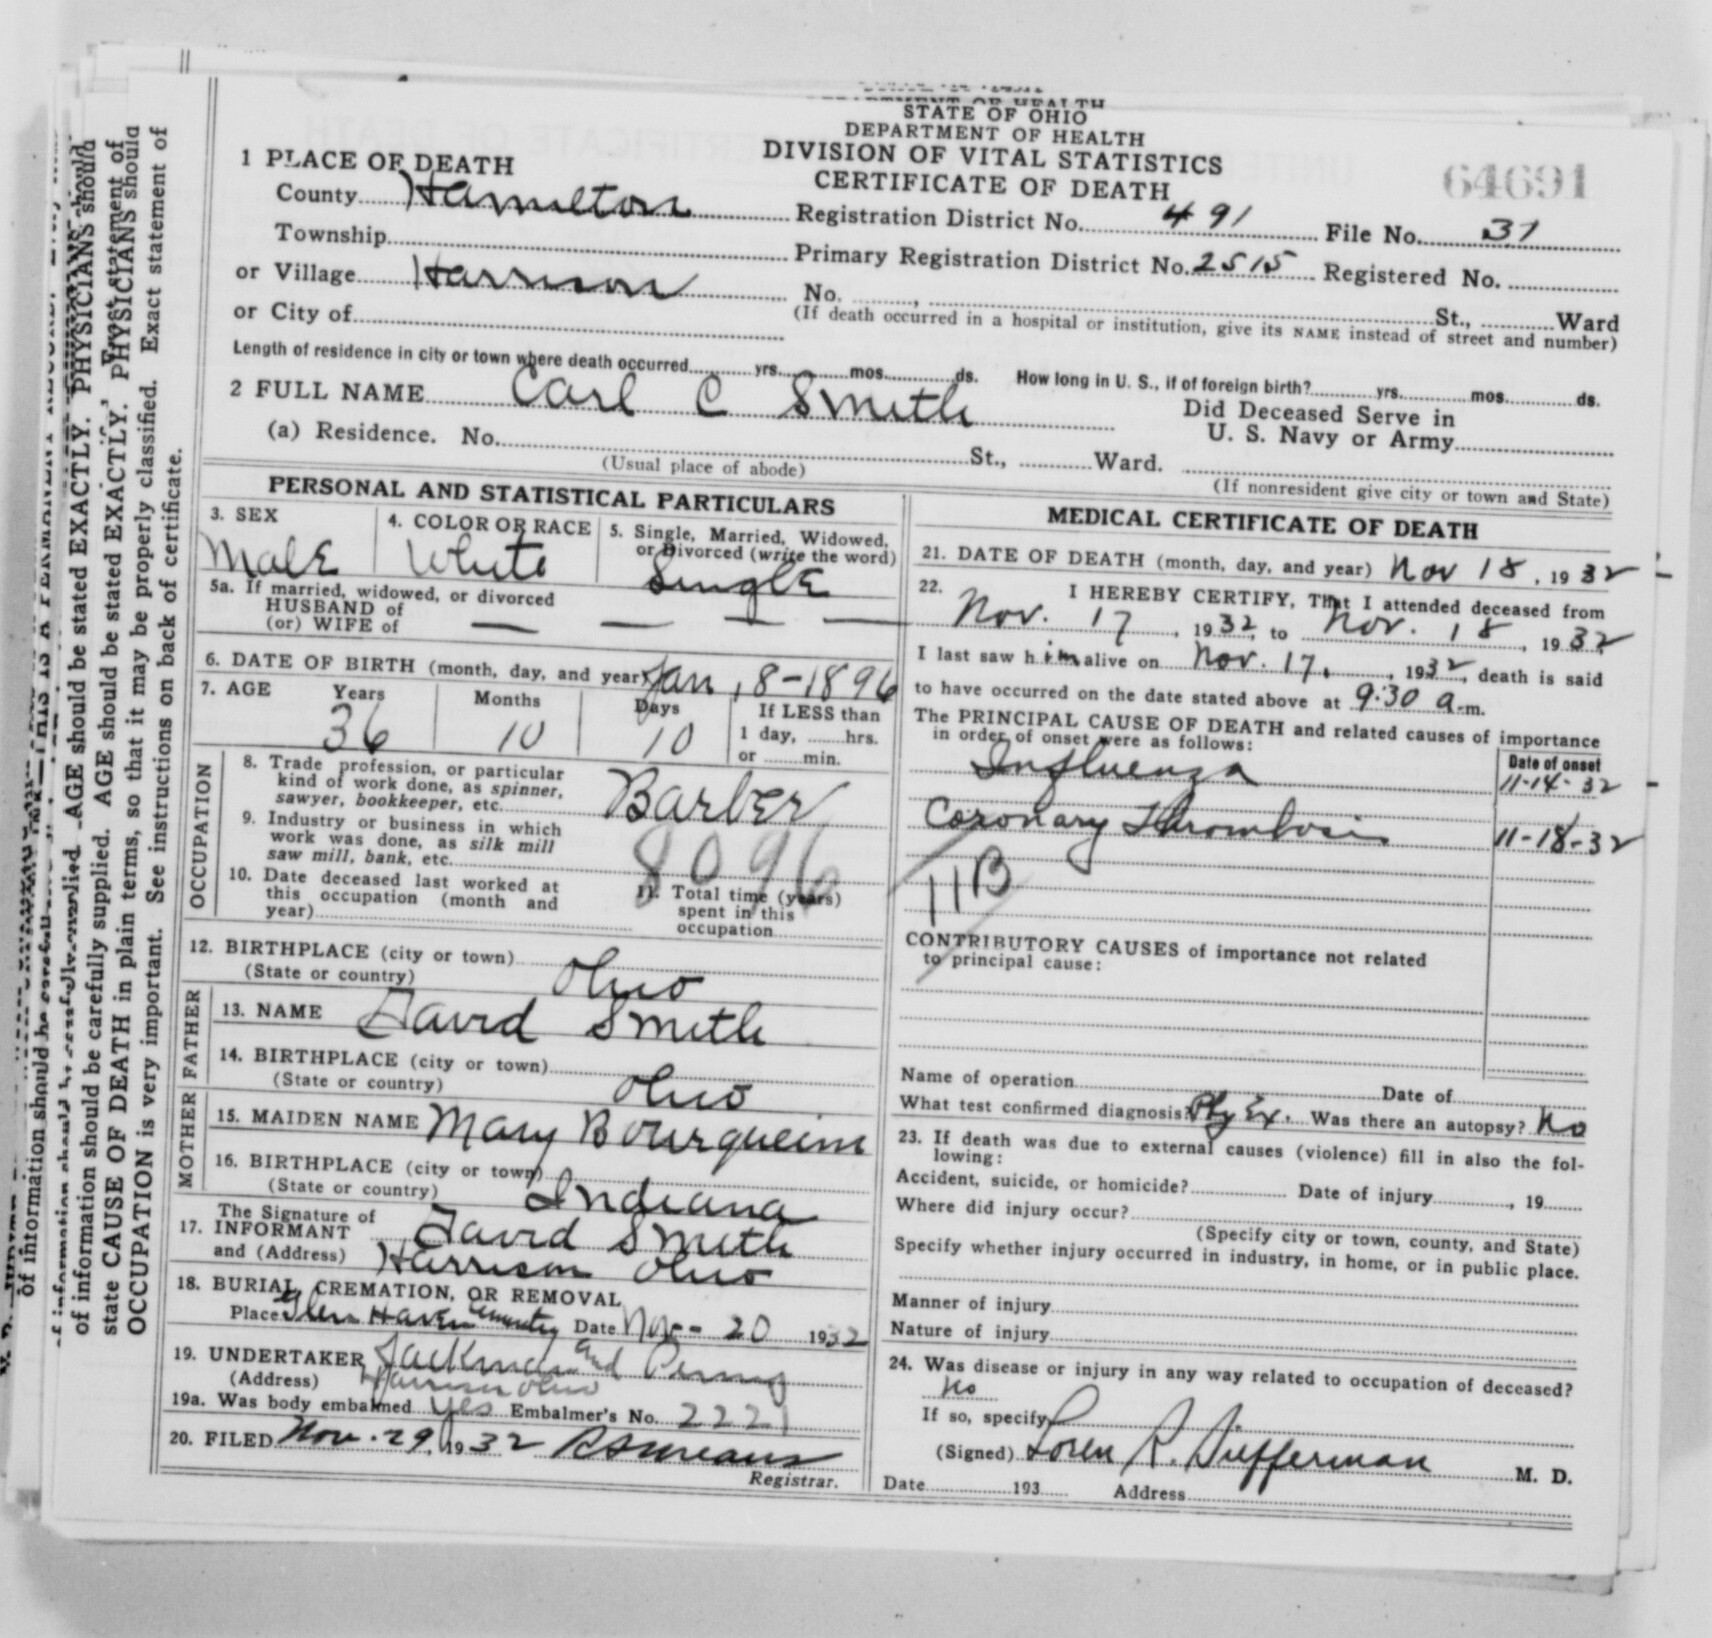 STATE OF OHIO
DEPARTMENT OF HEALTH
DIVISION OF VITAL STATISTICS
CERTIFICATE OF DEATH
64691
1 PLACE OF DEATH
County Hamilton Registration District No. 491 File No. 31
Township Primary Registration District No. 2515 Registered No.
or Village Harrison No. , St., Ward
or City of (If death occurred in a hospital or institution, give its NAME instead of street and number)
Length of residence in city or town where death occurred yrs. mos. ds. How long in U. S., if of foreign birth? yrs. mos. ds.
2 FULL NAME Carl C Smith Did Deceased Serve in
U. S. Navy or Army
(a) Residence. No. St., Ward.
(Usual place of abode) (If nonresident give city or town and State)
PERSONAL AND STATISTICAL PARTICULARS
3. SEX 4. COLOR OR RACE 5. Single, Married, Widowed,
or Divorced (write the word)
Male White Single
5a. If married, widowed, or divorced
HUSBAND of
(or) WIFE of — — — —
6. DATE OF BIRTH (month, day, and year) Jan, 8-1896
7. AGE Years Months Days If LESS than
1 day, hrs.
or min.
36 10 10
OCCUPATION
8. Trade profession, or particular
kind of work done, as spinner,
sawyer, bookkeeper, etc. Barber
9. Industry or business in which
work was done, as silk mill
saw mill, bank, etc.
8096
10. Date deceased last worked at
this occupation (month and
year)
11. Total time (years)
spent in this
occupation
12. BIRTHPLACE (city or town)
(State or country) Ohio
FATHER
13. NAME David Smith
14. BIRTHPLACE (city or town)
(State or country) Ohio
MOTHER
15. MAIDEN NAME Mary Bourquein
16. BIRTHPLACE (city or town)
(State or country) Indiana
17. The Signature of
INFORMANT David Smith
and (Address) Harrison Ohio
18. BURIAL, CREMATION, OR REMOVAL
Place Glen Haven Cemetery Date Nov- 20 1932
19. UNDERTAKER Jackman and
(Address) Harrison Ohio
19a. Was body embalmed Yes Embalmer's No. 2221
20. FILED Nov. 29, 1932
Registrar.
MEDICAL CERTIFICATE OF DEATH
21. DATE OF DEATH (month, day, and year) Nov 18, 1932
22. I HEREBY CERTIFY, That I attended deceased from
Nov. 17, 1932, to Nov. 18, 1932
I last saw him alive on Nov. 17, 1932, death is said
to have occurred on the date stated above at 9:30 a.m.
The PRINCIPAL CAUSE OF DEATH and related causes of importance
in order of onset were as follows:
Date of onset
Influenza 11-14-32
Coronary Thrombosis 11-18-32
11B
CONTRIBUTORY CAUSES of importance not related
to principal cause:
Name of operation Date of
What test confirmed diagnosis? Phy Ex. Was there an autopsy? No
23. If death was due to external causes (violence) fill in also the fol-
lowing:
Accident, suicide, or homicide? Date of injury , 19
Where did injury occur?
(Specify city or town, county, and State)
Specify whether injury occurred in industry, in home, or in public place.
Manner of injury
Nature of injury
24. Was disease or injury in any way related to occupation of deceased?
No
If so, specify
(Signed) Loren R. M. D.
Date 193 Address
of information should be carefully supplied. AGE should be stated EXACTLY. PHYSICIANS should
state CAUSE OF DEATH in plain terms, so that it may be properly classified. Exact statement of
OCCUPATION is very important. See instructions on back of certificate.